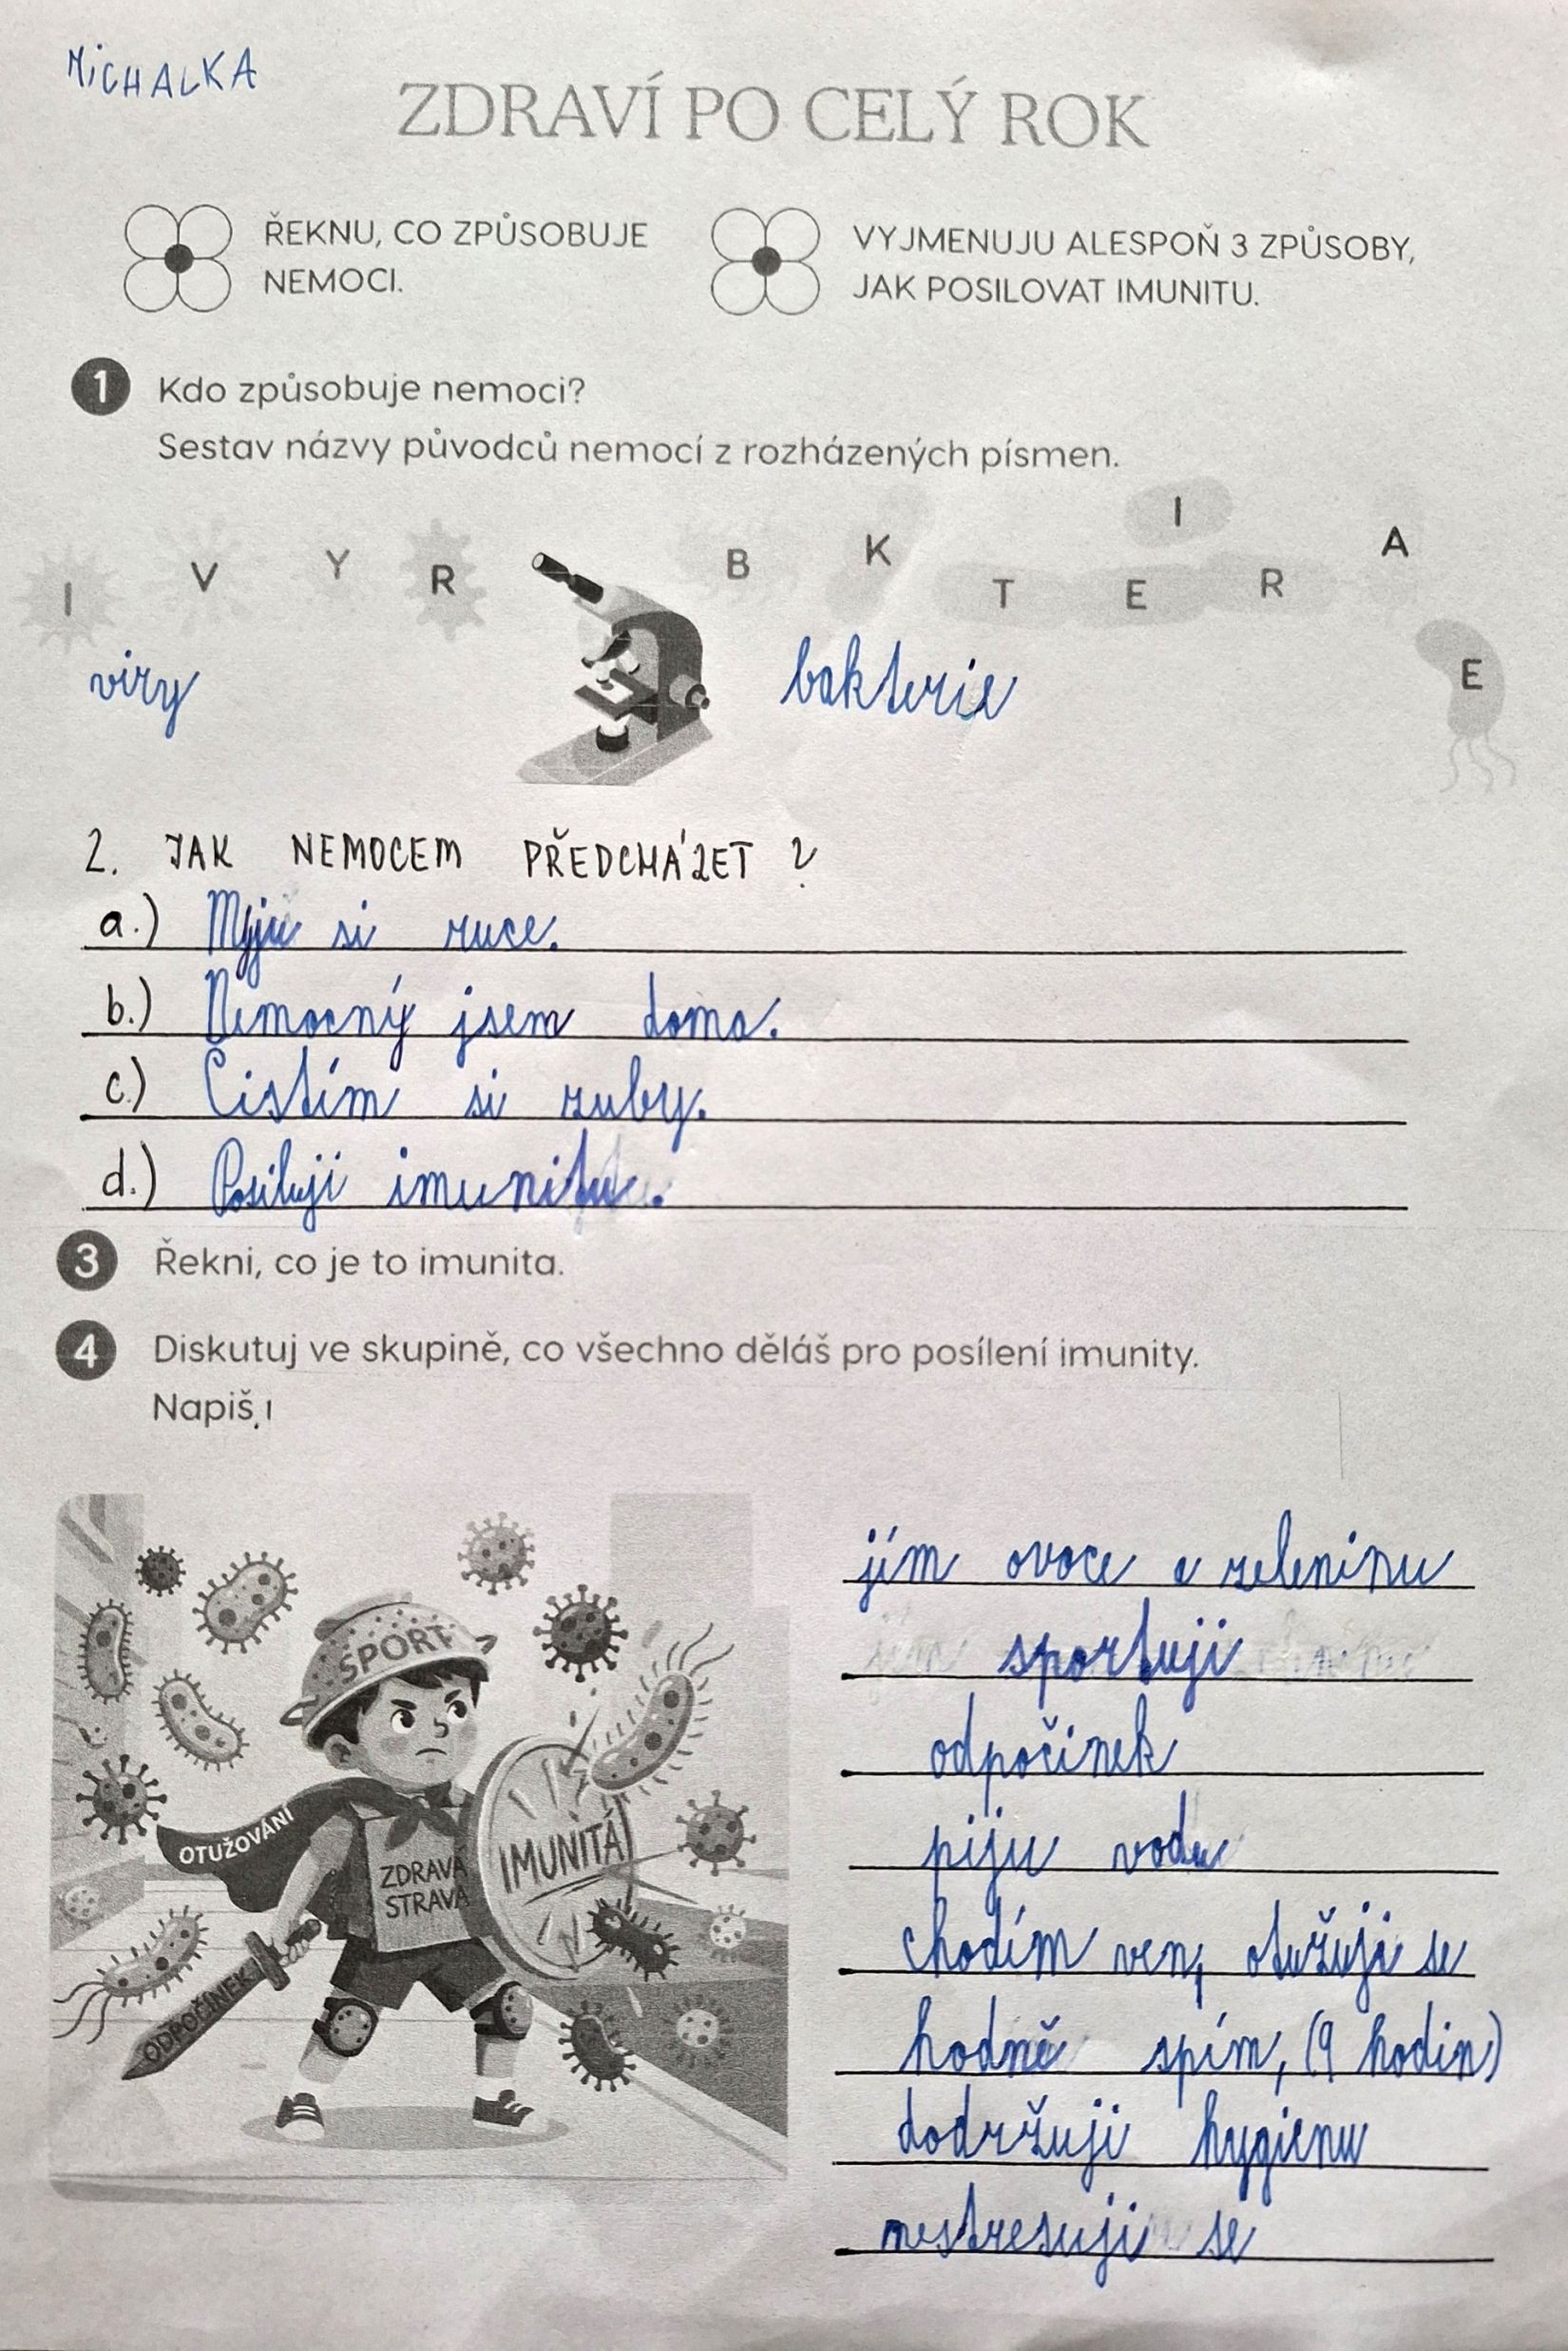 MiCHALKA
ZDRAVÍ PO CELÝ ROK
ŘEKNU, CO ZPŮSOBUJE
NEMOCI.
VYJMENUJU ALESPOŇ 3 ZPŮSOBY,
JAK POSILOVAT IMUNITU.
1 Kdo způsobuje nemoci?
Sestav názvy původců nemocí z rozházených písmen.
I V Y R B K T E I R A E
viry bakterie
2. JAK NEMOCEM PŘEDCHÁZET ?
a.) Myju si ruce.
b.) Nemocný jsem doma.
c.) Čistím si zuby.
d.) Posiluji imunitu.
3 Řekni, co je to imunita.
4 Diskutuj ve skupině, co všechno děláš pro posílení imunity.
Napiš.
SPORT
OTUŽOVÁNÍ
ZDRAVÁ
STRAVA
IMUNITA
ODPOČINEK
jím ovoce a zeleninu
sportuji
odpočinek
piju vodu
chodím ven, otužuji se
hodně spím, (9 hodin)
dodržuji hygienu
nestresuji se